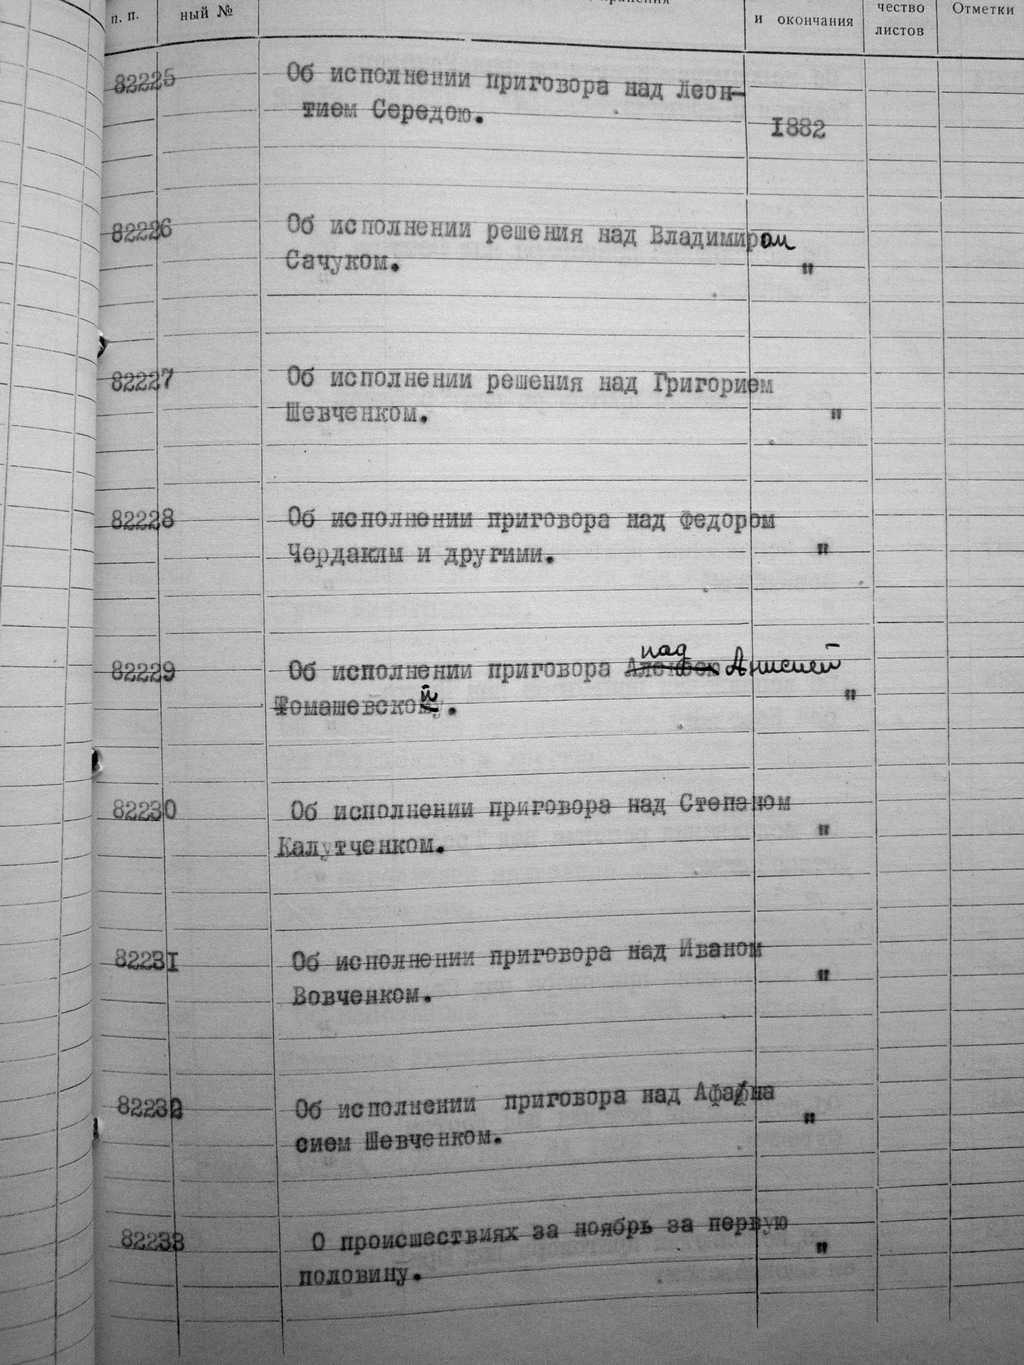 п. п.
ный №
и окончания
чество
листов
Отметки
82225 Об исполнении приговора над Леон-
тием Середою. 1882
82226 Об исполнении решения над Владимиром
Сачуком. "
82227 Об исполнении решения над Григорием
Шевченком. "
82228 Об исполнении приговора над Федором
Чердаклы и другими. "
над
82229 Об исполнении приговора Алексею Анисией
Томашевской. "
82230 Об исполнении приговора над Степаном
Калутченком. "
82231 Об исполнении приговора над Иваном
Вовченком. "
82232 Об исполнении приговора над Афана
сием Шевченком. "
82233 О происшествиях за ноябрь за первую
половину. "